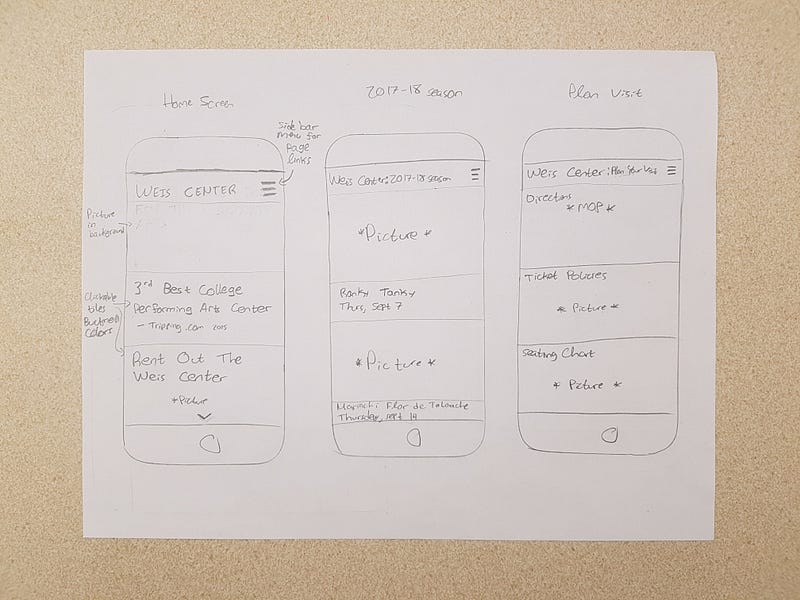 Home Screen
side bar
menu for
page
links
WEIS CENTER
Picture
in
background
3rd Best College
Performing Arts Center
- Tripping.com 2015
Clickable
tiles
Bucknell
Colors
Rent Out The
Weis Center
*Picture
2017-18 season
Weis Center: 2017-18 season
*Picture *
Ranky Tanky
Thurs, Sept 7
*Picture *
Mariachi Flor de Toloache
Thursday, Sept 14
Plan Visit
Weis Center: Plan Your Visit
Directions
* MAP *
Ticket Policies
* Picture *
Seating Chart
* Picture *